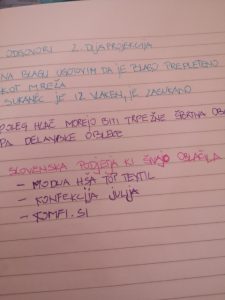 ODGOVORI 2. DIJAPROJEKCIJA
NA BLAGU UGOTOVIM DA JE BLAGO PREPLETENO
KOT MREŽA
SUKANEC JE IZ VLAKEN, JE ZASUKANO
POLEG HLAČ MOREJO BITI TRPEŽNE ŠPORTNA OB
PA DELAVSKE OBLEKE
SLOVENSKA PODJETJA KI ŠIVAJO OBLAČILA
- MODNA HŠA TOP TEXTIL
- KONFEKCIJA JULIJA
- KOMFI.SI